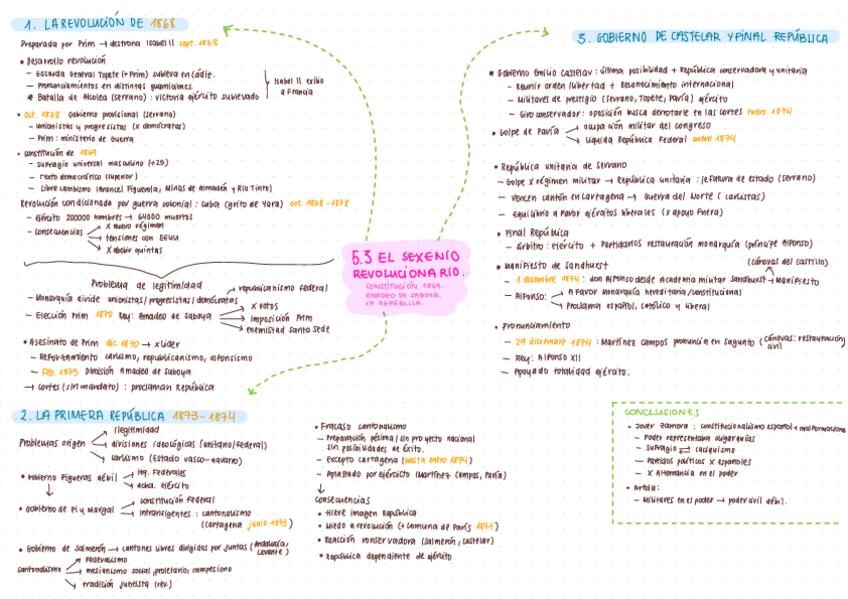 1. LA REVOLUCIÓN DE 1868
Preparada por Prim → destrona Isabel II sept. 1868
• Desarrollo revolución
– Escuadra General Topete (+Prim) subleva en Cádiz.
– Pronunciamientos en distintas guarniciones.
* Batalla de Alcolea (Serrano): victoria ejército sublevado
Isabel II exilio a Francia
• Oct. 1868 Gobierno provisional (Serrano)
– unionistas y progresistas (x demócratas)
– Prim: ministerio de Guerra
• Constitución de 1869
– Sufragio universal masculino (+25)
– Texto democrático (superior)
– Libre cambismo (Arancel Figuerola, Minas de Almadén y Río Tinto)
Revolución condicionada por guerra colonial: Cuba (grito de Yara) oct. 1868-1878
– Ejército 200000 hombres → 64000 muertos
– Consecuencias
x nuevo régimen
tensiones con EEUU
x abolir quintas
Problema de legitimidad
– Monarquía divide unionistas/progresistas/demócratas
republicanismo federal
– Elección Prim 1870 Rey: Amadeo de Saboya
x votos
Imposición Prim
enemistad Santa Sede
• Asesinato de Prim dic 1870 → x líder
– Reforzamiento carlismo, republicanismo, alfonsismo
– Feb. 1873 Dimisión Amadeo de Saboya
→ Cortes (sin mandato): proclaman República
5.3 EL SEXENIO
REVOLUCIONARIO.
CONSTITUCIÓN 1869.
AMADEO DE SABOYA.
LA REPÚBLICA.
2. LA PRIMERA REPÚBLICA 1873-1874
Problemas origen
ilegitimidad
divisiones ideológicas (unitario/federal)
carlismo (Estado vasco-navarro)
• Gobierno Figueras débil
izq. Federales
dcha. Ejército
• Gobierno de Pi y Margal
constitución Federal
Intransigentes: cantonalismo
(Cartagena junio 1873)
• Gobierno de Salmerón → cantones libres dirigidos por juntas (Andalucía, Levante)
cantonalismo
Federalismo
mesianismo social, proletario, campesino
tradición juntista (rev.)
• Fracaso cantonalismo
– Preparación pésima/sin proyecto nacional
sin posibilidades de éxito.
– Excepto Cartagena (hasta enero 1874)
– Aplastado por ejército (Martínez Campos, Pavía)
Consecuencias
• Hiere imagen República
• Miedo a revolución (+ Comuna de París 1871)
• Reacción conservadora (Salmerón, Castelar)
• República dependiente de ejército
3. GOBIERNO DE CASTELAR Y FINAL REPÚBLICA
• Gobierno Emilio Castelar: última posibilidad + República conservadora y unitaria
– Reunir orden/libertad + Reconocimiento internacional
– Militares de prestigio (Serrano, Topete, Pavía) ejército
– Giro conservador: oposición busca derrotarle en las cortes enero 1874
• Golpe de Pavía
ocupación militar del congreso
Liquida República Federal enero 1874
• República unitaria de Serrano
– Golpe x régimen militar → República unitaria: jefatura de estado (Serrano)
– Vencen cantón en Cartagena → Guerra del Norte (carlistas)
– Equilibrio a favor ejércitos liberales (x apoyo Fuera)
• Final República
– Árbitro: Ejército + Partidarios restauración monarquía (príncipe Alfonso)
• Manifiesto de Sandhurst
(Cánovas del Castillo)
– 1 diciembre 1874: don Alfonso desde Academia militar Sandhurst → Manifiesto
– Alfonso:
A Favor monarquía hereditaria/constitucional
Proclama español, católico y liberal
• Pronunciamiento
– 29 diciembre 1874: Martínez Campos pronuncia en Sagunto (Cánovas: restauración civil
– Rey: Alfonso XII
– Apoyado totalidad ejército.
CONCLUSIONES
• Jover Zamora: constitucionalismo español + malformaciones
– Poder representaba oligarquías
– Sufragio ⇄ caciquismo
– Partidos políticos x españoles
– x Alternancia en el poder
• Artola:
– Militares en el poder → poder civil débil.